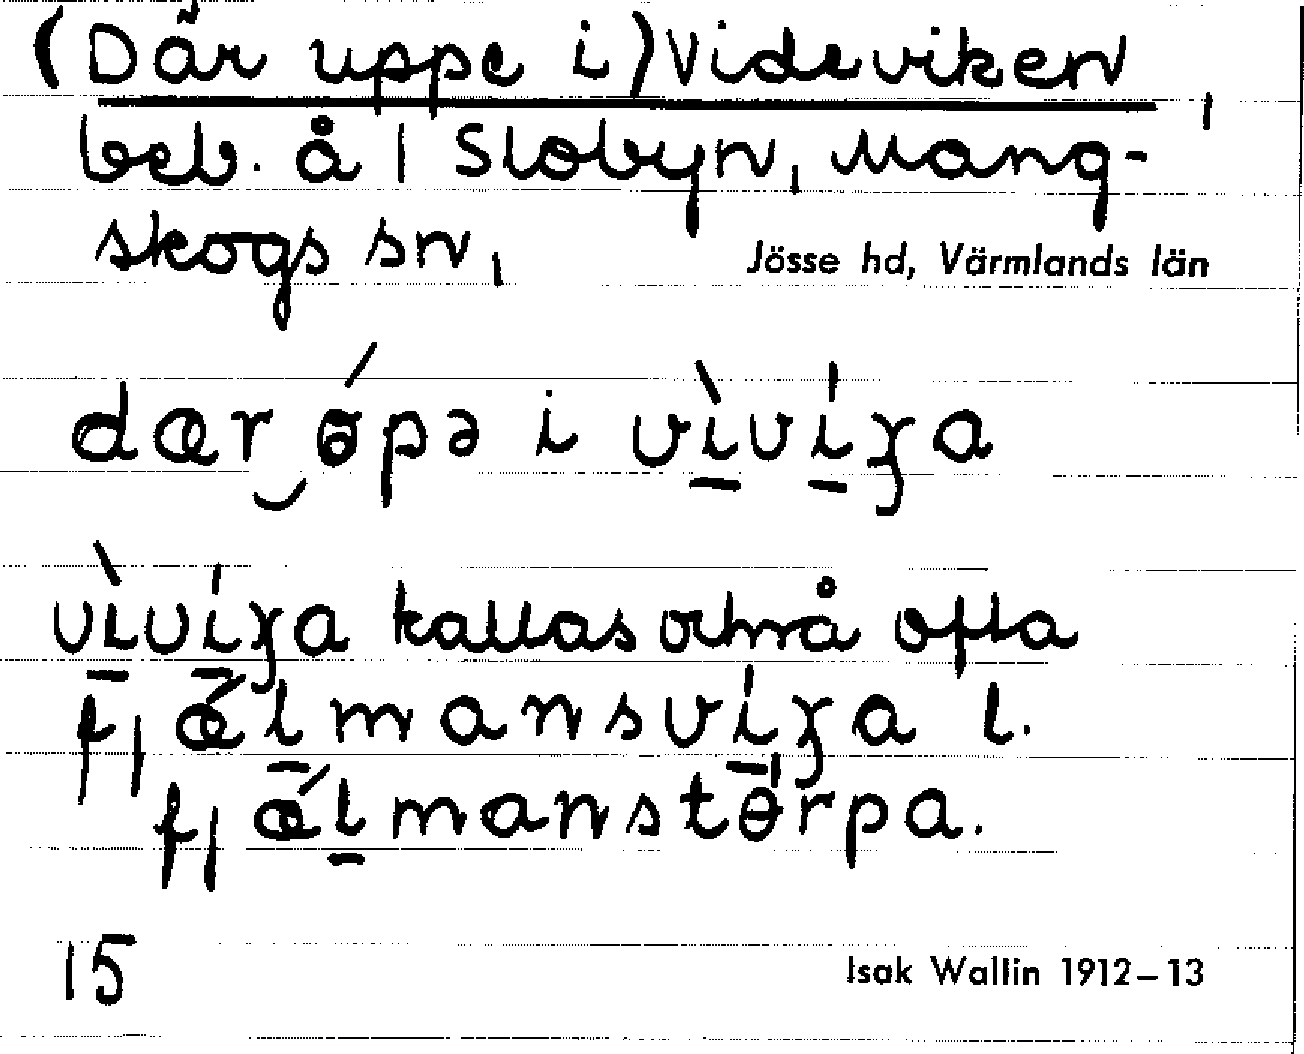 (Där uppe i) Videviken,
beb. å 1 Slobyn, Mang-
skogs sn,
Jösse hd, Värmlands län
dær ɵ́pə i vìvíꭓa
vìvíꭓa kallas också ofta
f, ǽlmansvíꭓa l.
f, ǽlmanstɵ́rpa.
15
Isak Wallin 1912–13